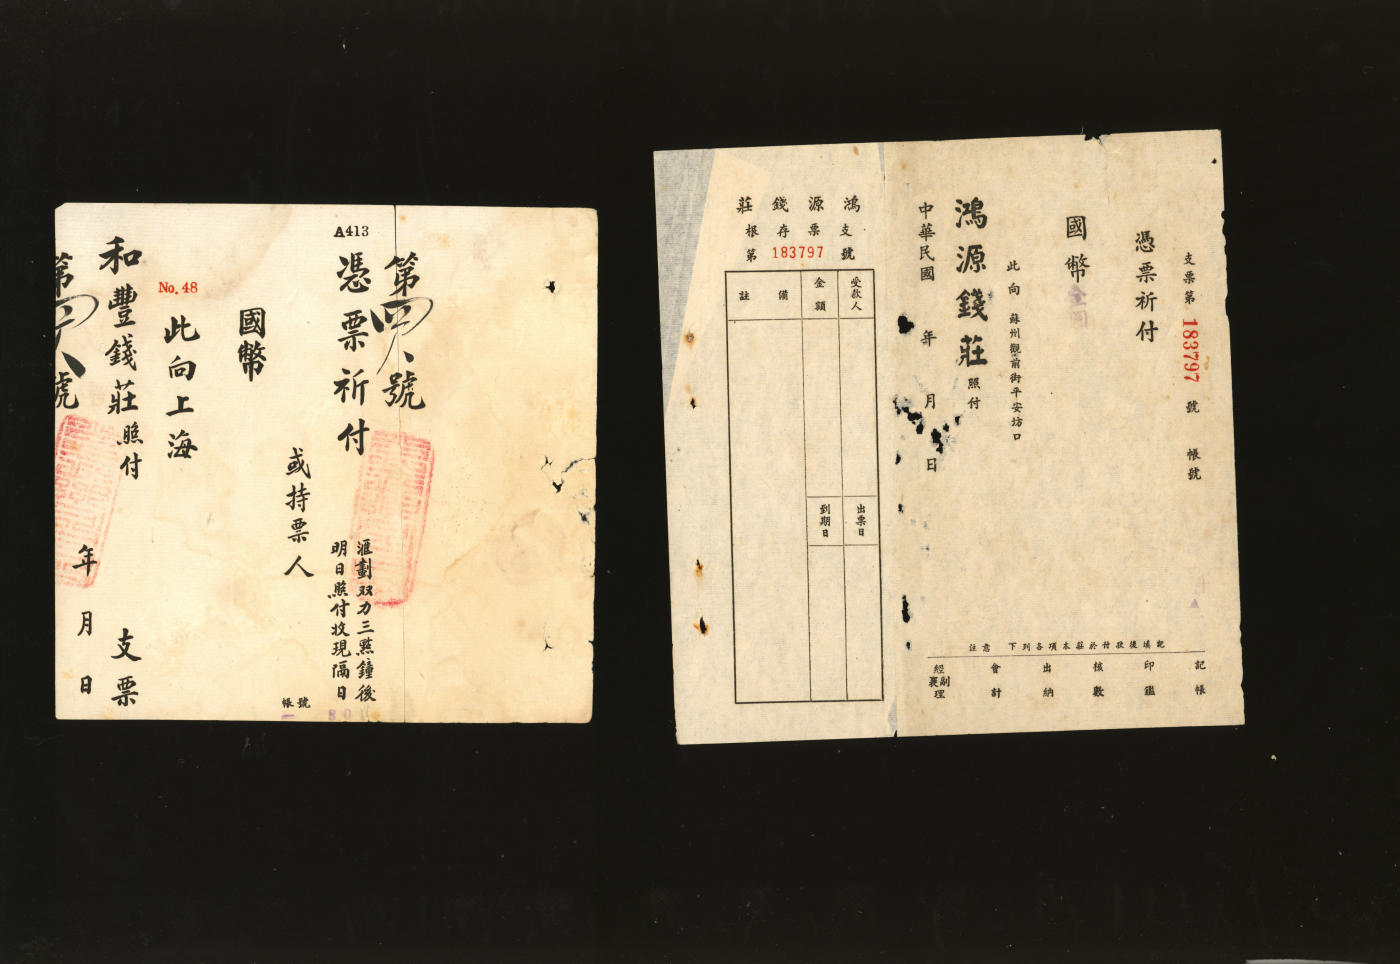 A413
第四八號
憑票祈付
滙劃双力三點鐘後
明日照付收現隔日
帳號
或持票人
國幣
No. 48
此向上海
和豐錢莊照付
支票
年月日
第四八號
支票第183797號 帳號
憑票祈付
國幣
此向 蘇州觀前街平安坊口
鴻源錢莊照付
中華民國 年 月 日
注意 下列各項本莊於付款後填記
記帳
印鑑
核數
出納
會計
經副襄理
鴻源錢莊
支票存根
第 183797 號
受款人
金額
備註
出票日
到期日